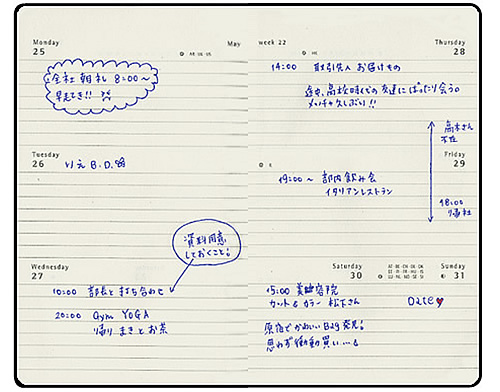 Monday
25
May
全社 朝礼 8:00~
早起き!!
Tuesday
26
りえ B.D.
資料用意
しておくこと!
Wednesday
27
10:00 部長と打ち合わせ
20:00 Gym YOGA
帰り まきとお茶
week 22
Thursday
28
14:00 取引先へ お届けもの
途中、高校時代の友達にばったり会う。
メッチャ久しぶり!!
高木さん
不在
Friday
29
19:00~ 部内飲み会
イタリアンレストラン
18:00
帰社
Saturday
30
Sunday
31
15:00 美容院
カット&カラー 松下さん
Date♥
原宿でかわいいBag発見!
思わず衝動買い…。